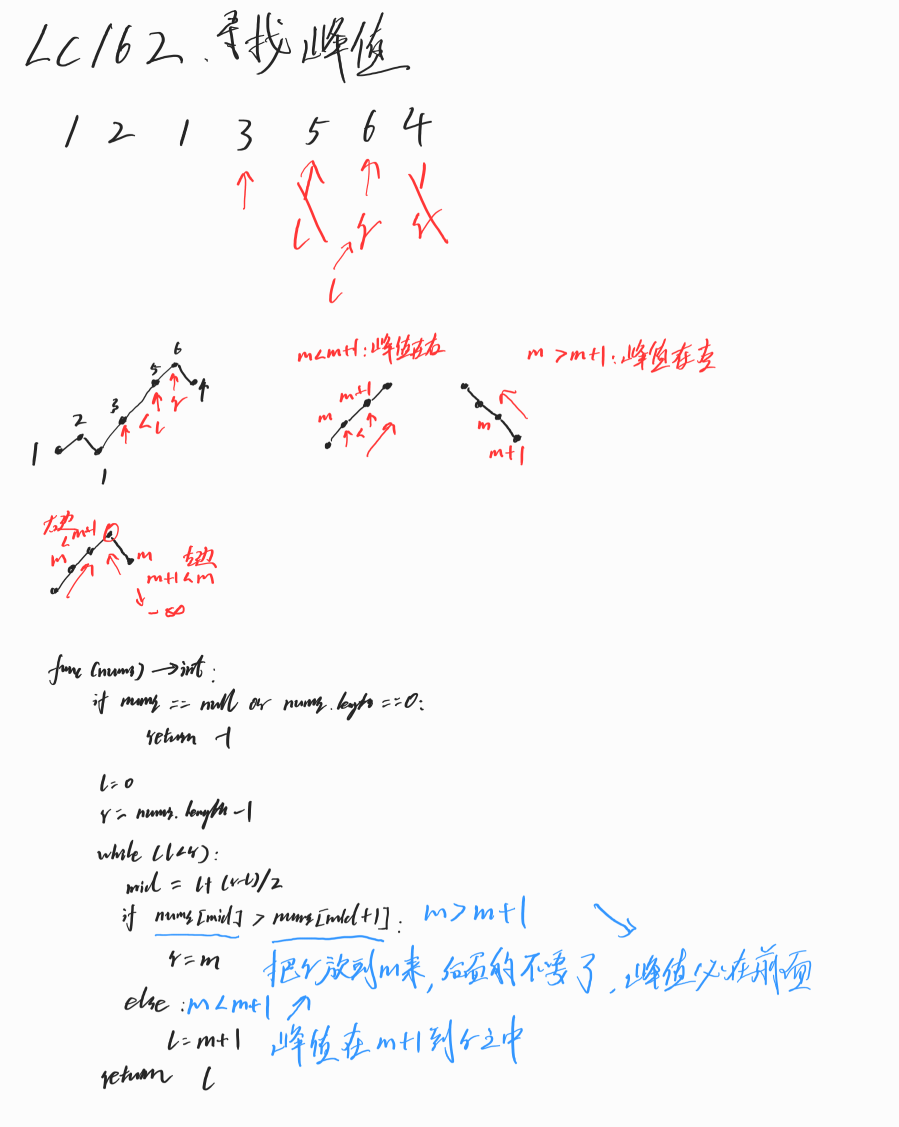 LC162.寻找峰值
1 2 1 3 5 6 4
l r r
l
m<m+1:峰值在右
m >m+1:峰值在左
6
5
3
2
4
1
1
< l r
m+1
m
<
m
m+1
右边
< m+1
m
m
左边
m+1<m
-∞
func (nums) →int:
if nums == null or nums.length ==0:
return -1
l=0
r= nums.length -1
while (l<r):
mid = l+ (r-l)/2
if nums[mid] > nums[mid+1]: m>m+1
r=m 把r放到m来,后面的不要了,峰值必在前面
else :m<m+1
l=m+1 峰值在m+1到r之中
return l